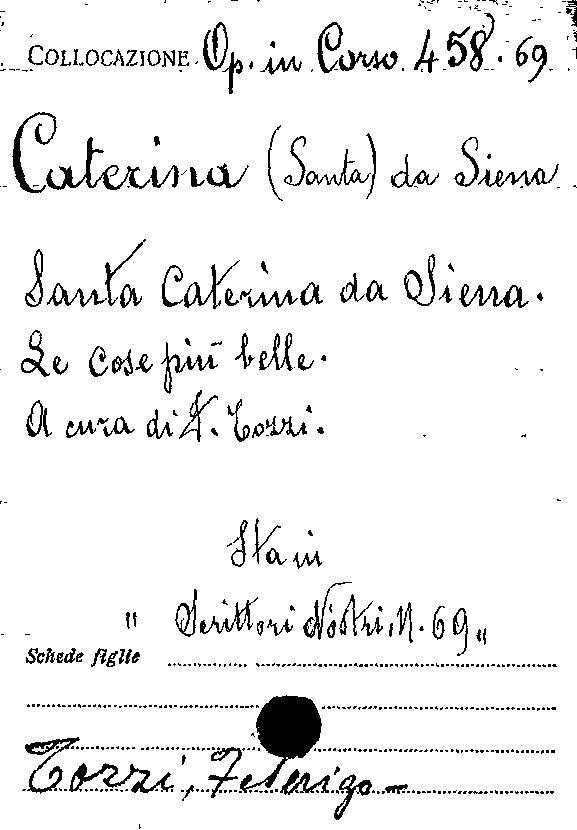 COLLOCAZIONE Op. in Corso 458.69
Caterina (Santa) da Siena
Santa Caterina da Siena.
Le cose più belle.
A cura di F. Tozzi.
Sta in
" Scrittori Nostri, N. 69 "
Schede figlie
Tozzi, Federigo -